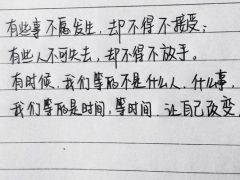 有些事不愿发生，却不得不接受；
有些人不可失去，却不得不放手。
有时候，我们等的不是什么人、什么事，
我们等的是时间，等时间，让自己改变。